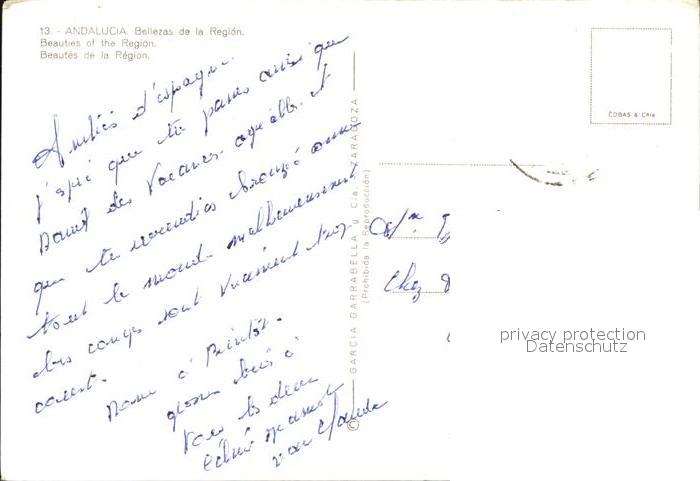 13. - ANDALUCIA. Bellezas de la Región.
Beauties of the Region.
Beautés de la Région.
COBAS & Cía
Amitiés d'espagne.
j'espère que tu passes ainsi que
des vacances agréables. et
que tu reviendras bronzé comme
tout le monde malheureusement
les congés sont vraiment trop
court.
à Bientôt.
gross bises à
vous les deux
Claude
GARCIA GARRABELLA y Cía. ZARAGOZA
(Prohibida la Reproducción)
©
Chez
privacy protection
Datenschutz